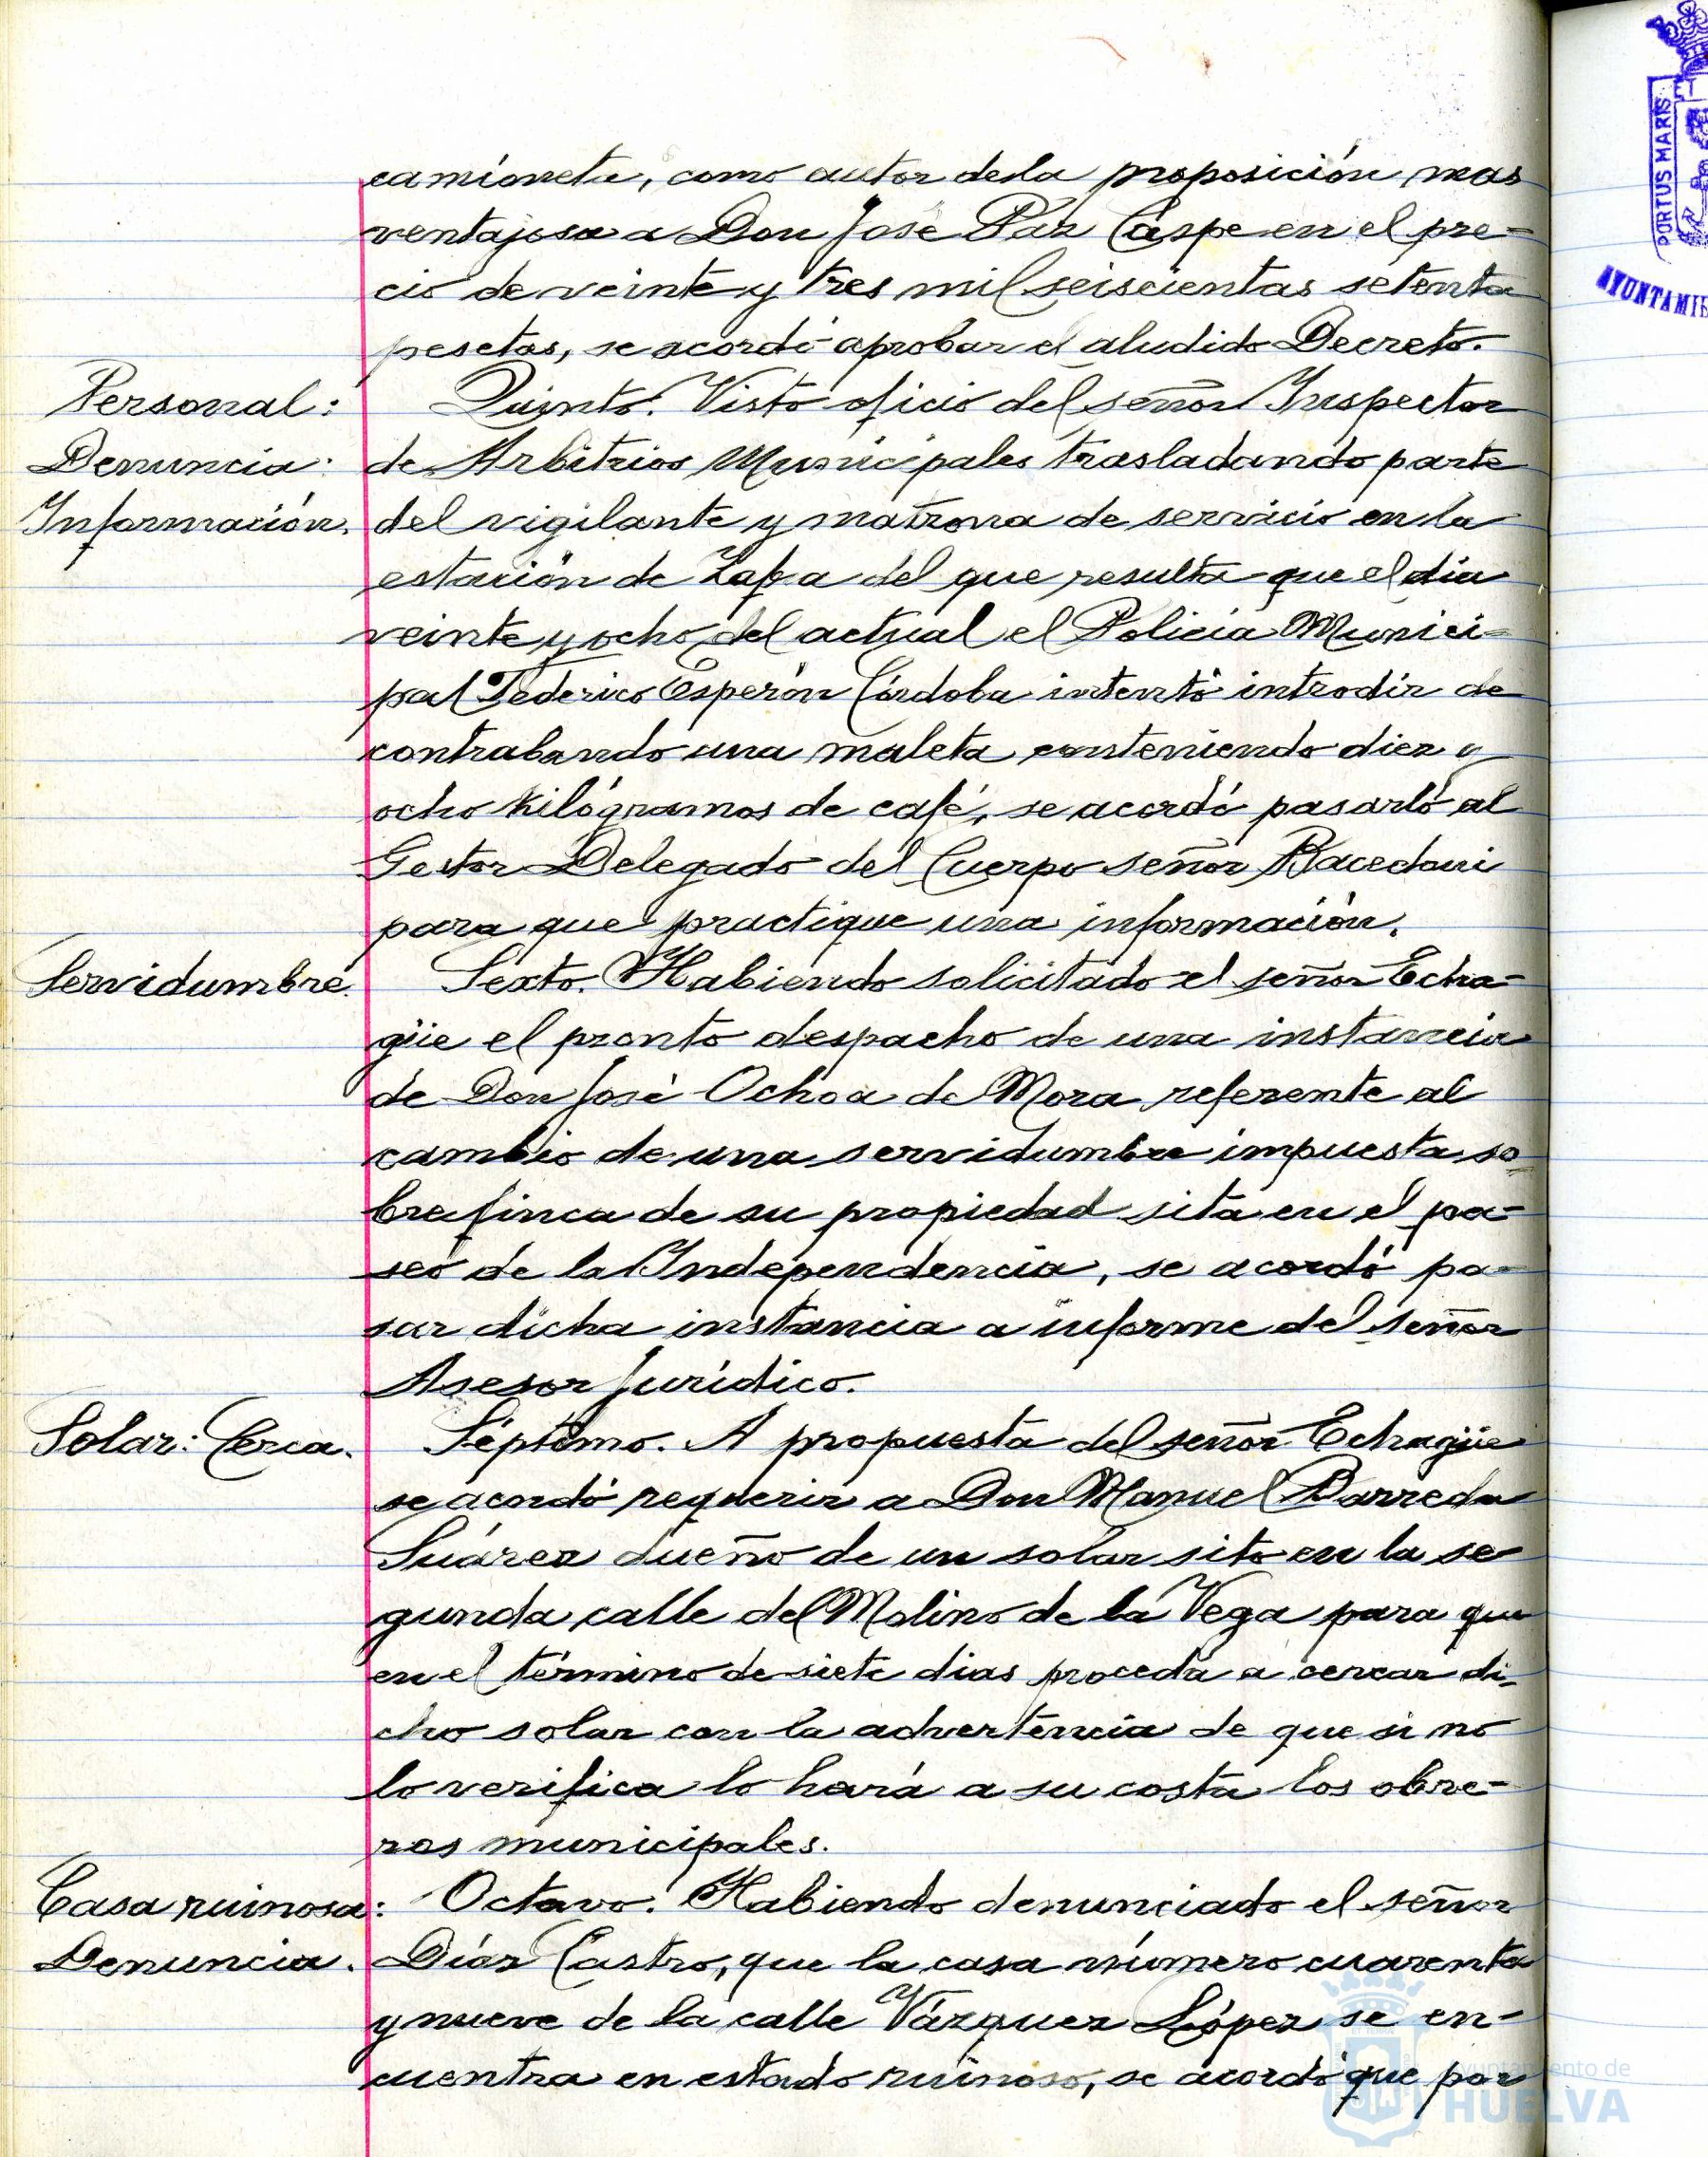 camioneta, como autor dela proposición mas
ventajosa a Don José Paz Caspe en el pre-
cio de veinte y tres mil seiscientas setenta
pesetas, se acordó aprobar el aludido Decreto.
Personal: Quinto. Visto oficio del señor Inspector
Denuncia: de Arbitrios Municipales trasladando parte
Información. del vigilante y matrona de servicio en la
estación de Zafra del que resulta que el dia
veinte y ocho del actual el Policía Munici-
pal Federico Esperón Córdoba intentó introdir de
contrabando una maleta conteniendo diez y
ocho kilógramos de café, se acordó pasarló al
Gestor Delegado del Cuerpo señor
para que practique una información.
Servidumbre. Sexto. Habiendo solicitado el señor Echa-
güe el pronto despacho de una instancia
de Don José Ochoa de Mora referente al
cambio de una servidumbre impuesta so
bre finca de su propiedad sita en el pa-
seo de la Independencia, se acordó pa-
sar dicha instancia a informe del señor
Asesor Jurídico.
Solar: Cerca. Séptimo. A propuesta del señor Echagüe
se acordó requerir a Don Manuel Barreda
Suárez dueño de un solar sito en la se
gunda calle del Molino de la Vega para que
en el término de siete dias proceda a cercar di-
cho solar con la advertencia de que si no
lo verifica lo hará a su costa los obre-
ros municipales.
Casa ruinosa: Octavo. Habiendo denunciado el señor
Denuncia. Díaz Castro, que la casa número cuarenta
y nueve de la calle Vázquez López se en-
cuentra en estado ruinoso, se acordó que por
PORTUS MARIS
Ayuntamiento de
HUELVA